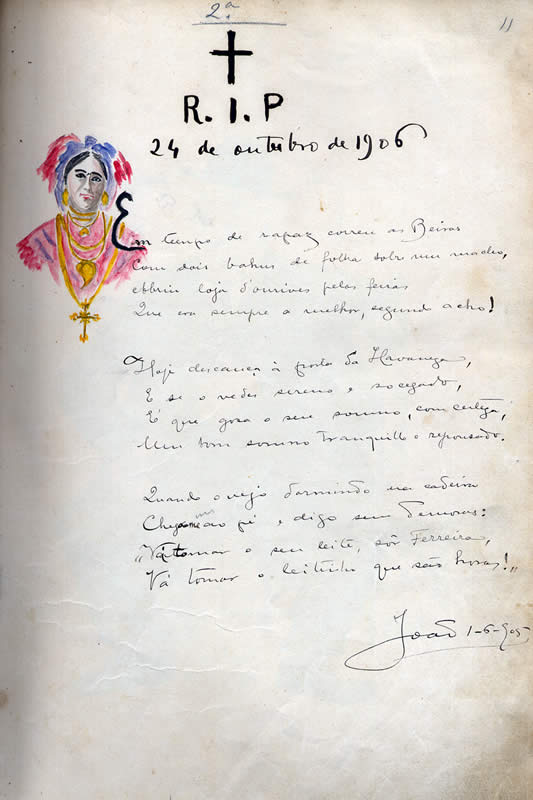 2.ª
11
R. I. P
24 de outubro de 1906
Em tempo de rapaz correu as Beiras
Com dois bahus de folha sobre um macho,
Abbriu loja d'ourives pelas feiras
Que era sempre a melhor, segund' acho!
Hoje descança à porta da Havaneza,
E se o vedes sereno e socegado,
É que gosa o seu somno, com certeza,
Um bom somno tranquillo e repousado.
Quando o vejo dormindo na cadeira
Chego-me ao pé e digo sem demoras:
"Vá tomar o seu leite, sôr Ferreira,
Vá tomar o leitinho que são horas!"
João 1-6-905